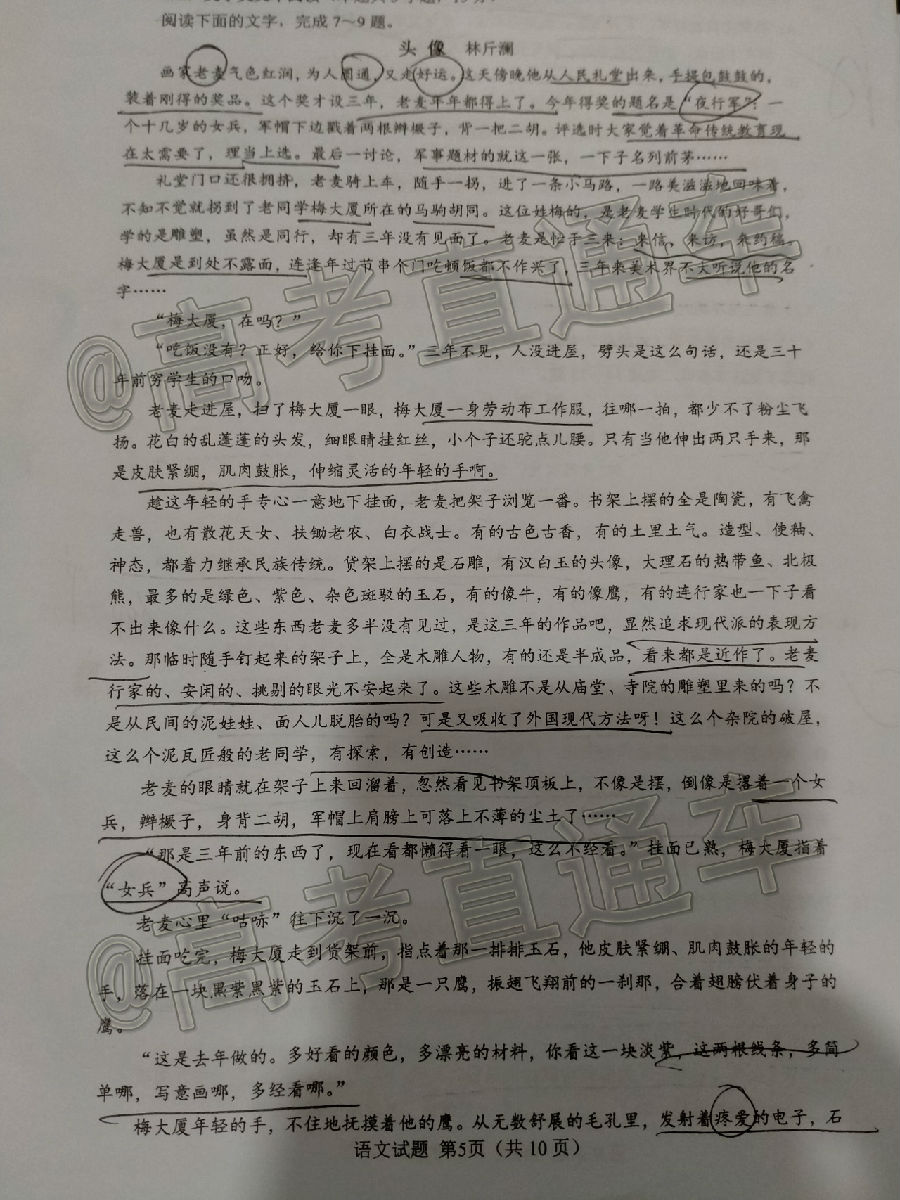 阅读下面的文字，完成7～9题。
头像 林斤澜
画家老麦气色红润，为人圆通，又走好运。这天傍晚他从人民礼堂出来，手提包鼓鼓的，
装着刚得的奖品。这个奖才设三年，老麦年年都得上了。今年得奖的题名是“夜行军”：一
个十几岁的女兵，军帽下边戳着两根辫橛子，背一把二胡。评选时大家觉着革命传统教育现
在太需要了，理当上选。最后一讨论，军事题材的就这一张，一下子名列前茅……
礼堂门口还很拥挤，老麦骑上车，随手一拐，进了一条小马路，一路美滋滋地回味着，
不知不觉就拐到了老同学梅大厦所在的马驹胡同。这位姓梅的，是老麦学生时代的好哥们，
学的是雕塑，虽然是同行，却有三年没有见面了。老麦是忙于三来：来信，来访，来约稿。
梅大厦是到处不露面，连逢年过节串个门吃顿饭都不作兴了，三年来美术界不大听说他的名
字……
“梅大厦，在吗？”
“吃饭没有？正好，给你下挂面。”三年不见，人没进屋，劈头是这么句话，还是三十
年前穷学生的口吻。
老麦走进屋，扫了梅大厦一眼，梅大厦一身劳动布工作服，往哪一拍，都少不了粉尘飞
扬。花白的乱蓬蓬的头发，细眼睛挂红丝，小个子还驼点儿腰。只有当他伸出两只手来，那
是皮肤紧绷，肌肉鼓胀，伸缩灵活的年轻的手啊。
趁这年轻的手专心一意地下挂面，老麦把架子浏览一番。书架上摆的全是陶瓷，有飞禽
走兽，也有散花天女、扶锄老农、白衣战士。有的古色古香，有的土里土气。造型、使釉、
神态，都着力继承民族传统。货架上摆的是石雕，有汉白玉的头像，大理石的热带鱼、北极
熊，最多的是绿色、紫色、杂色斑驳的玉石，有的像牛，有的像鹰，有的连行家也一下子看
不出来像什么。这些东西老麦多半没有见过，是这三年的作品吧，显然追求现代派的表现方
法。那临时随手钉起来的架子上，全是木雕人物，有的还是半成品，看来都是近作了。老麦
行家的、安闲的、挑剔的眼光不安起来了。这些木雕不是从庙堂、寺院的雕塑里来的吗？不
是从民间的泥娃娃、面人儿脱胎的吗？可是又吸收了外国现代方法呀！这么个杂院的破屋，
这么个泥瓦匠般的老同学，有探索，有创造……
老麦的眼睛就在架子上来回溜着，忽然看见书架顶板上，不像是摆，倒像是撂着一个女
兵，辫橛子，身背二胡，军帽上肩膀上可落上不薄的尘土了……
“那是三年前的东西了，现在看都懒得看一眼，这么不经看。”挂面已熟，梅大厦指着
“女兵”高声说。
老麦心里“咕咏”往下沉了一沉。
挂面吃完，梅大厦走到货架前，指点着那一排排玉石，他皮肤紧绷、肌肉鼓胀的年轻的
手，落在一块黑紫黑紫的玉石上，那是一只鹰，振翅飞翔前的一刹那，合着翅膀伏着身子的
鹰。
“这是去年做的。多好看的颜色，多漂亮的材料，你看这一块淡紫，这两根线条，多简
单哪，写意画哪，多经看哪。”
梅大厦年轻的手，不住地抚摸着他的鹰。从无数舒展的毛孔里，发射着疼爱的电子，石
语文试题 第5页（共10页）
@高考直通车
@高考直通车